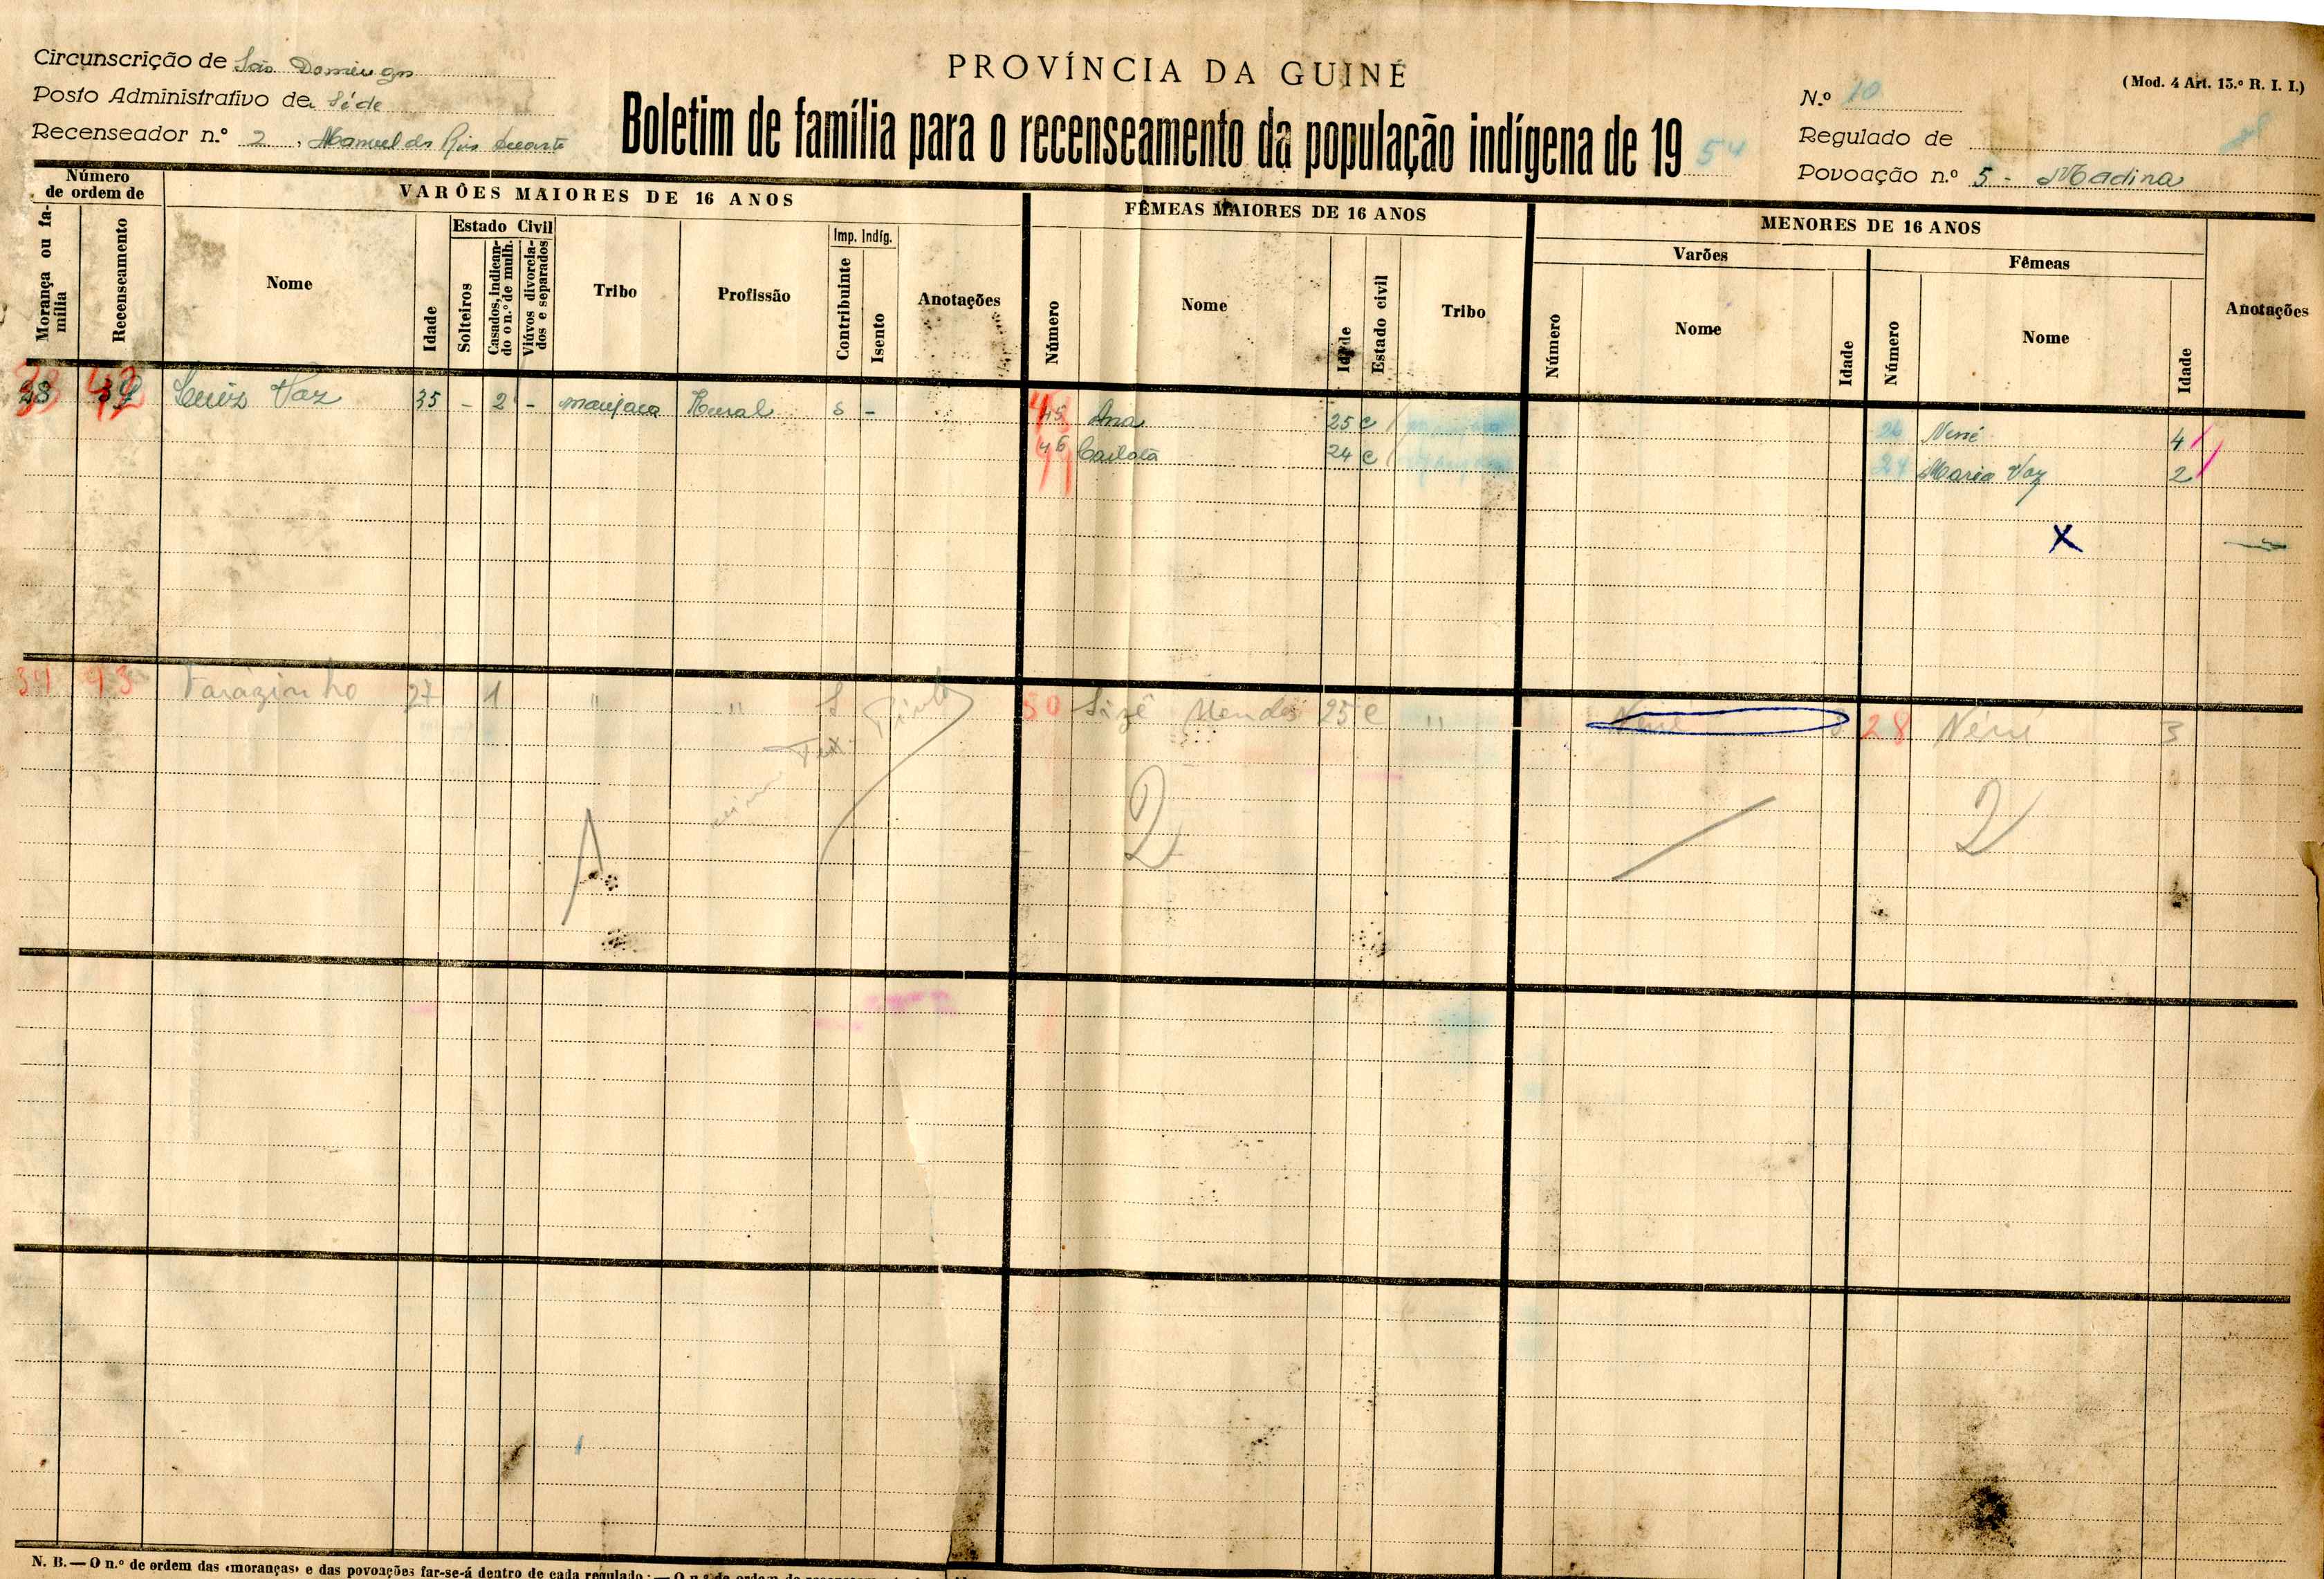 Circunscrição de São Domingos
Posto Administrativo de Séde
Recenseador n.º 2, Manuel dos Reis Duarte
PROVÍNCIA DA GUINÉ
Boletim de família para o recenseamento da população indígena de 1954
(Mod. 4 Art. 15.º R. I. I.)
N.º 10
Regulado de
Povoação n.º 5 - Madina
Número de ordem de
VARÕES MAIORES DE 16 ANOS
FÊMEAS MAIORES DE 16 ANOS
MENORES DE 16 ANOS
Morança ou família
Recenseamento
Nome
Idade
Estado Civil
Solteiros
Casados, indicando o n.º de mulh.
Viúvos divorciados e separados
Tribo
Profissão
Imp. Indíg.
Contribuinte
Isento
Anotações
Número
Nome
Idade
Estado civil
Tribo
Varões
Número
Nome
Idade
Fêmeas
Número
Nome
Idade
Anotações
Luís Vaz 35 - 2 - manjaca Rural s - 45 Ana 25 c 26 Nené 4
46 Carlota 24 c 27 Maria Vaz 2
X
34 43 Varázinho 27 1 " " S 50 Sizê Mendes 25 c " Nené 28 Nené 3
2 2
N. B. — O n.º de ordem das «moranças» e das povoações far-se-á dentro de cada regulado; — O n.º de ordem